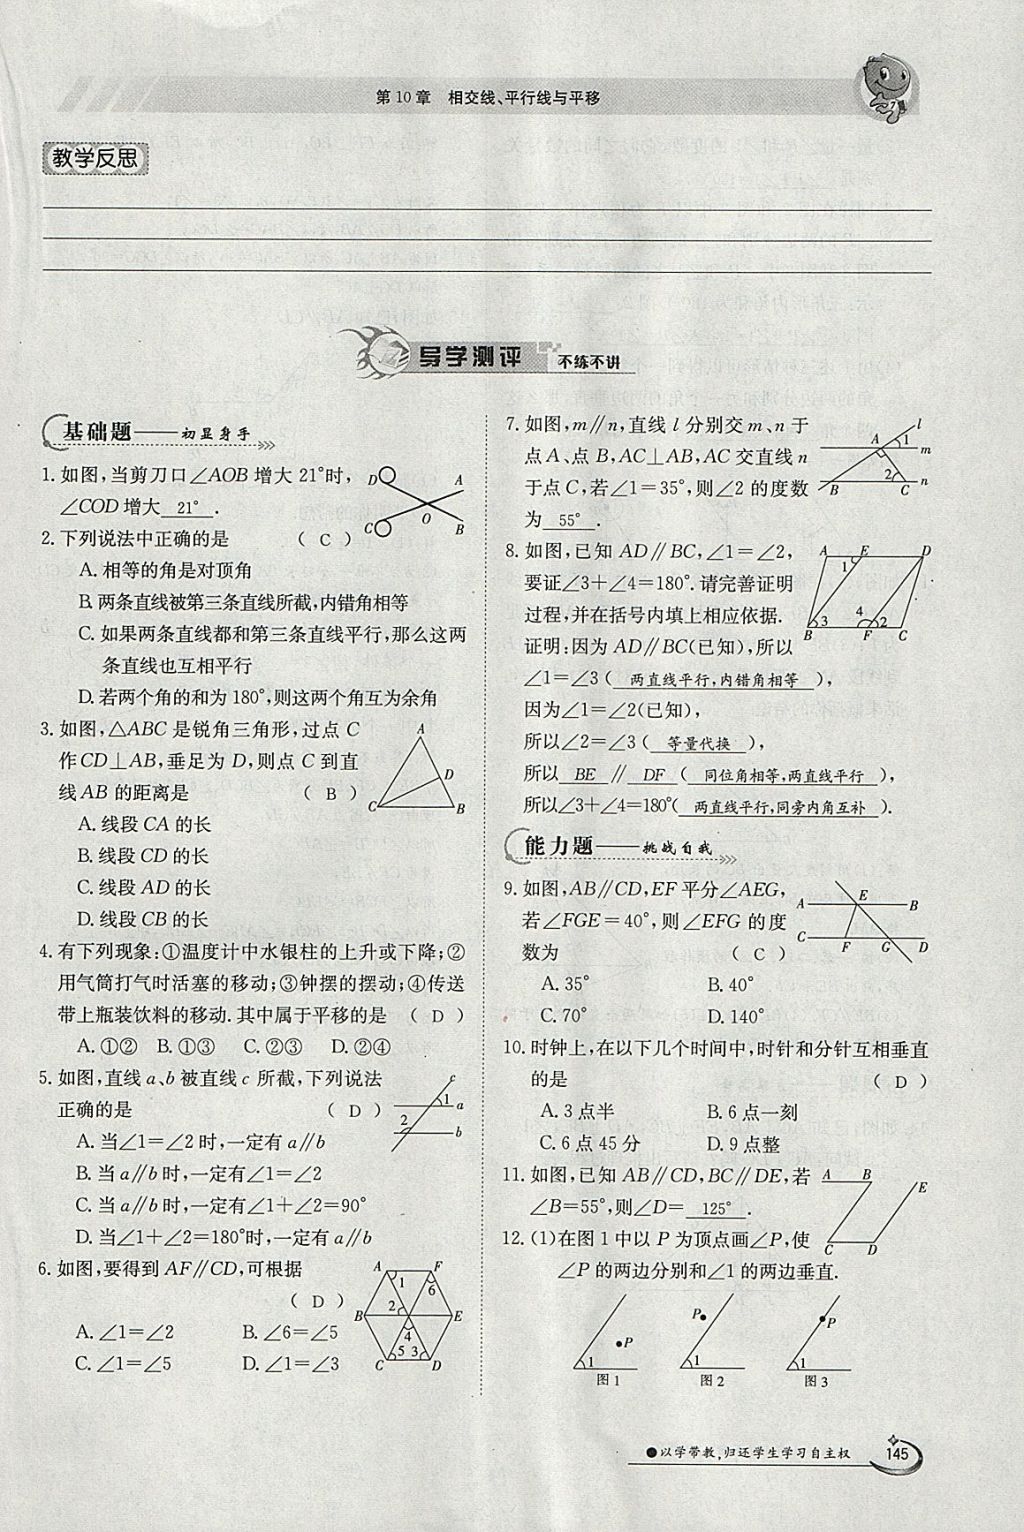 第10章 相交线、平行线与平移
教学反思
导学测评 不练不讲
基础题——初显身手
1. 如图,当剪刀口∠AOB增大21°时,
∠COD增大 21° .
D
A
C
O
B
2. 下列说法中正确的是 ( C )
A. 相等的角是对顶角
B. 两条直线被第三条直线所截,内错角相等
C. 如果两条直线都和第三条直线平行,那么这两
条直线也互相平行
D. 若两个角的和为180°,则这两个角互为余角
3. 如图,△ABC是锐角三角形,过点C
作CD⊥AB,垂足为D,则点C到直
线AB的距离是 ( B )
A
D
C
B
A. 线段CA的长
B. 线段CD的长
C. 线段AD的长
D. 线段CB的长
4. 有下列现象:①温度计中水银柱的上升或下降;②
用气筒打气时活塞的移动;③钟摆的摆动;④传送
带上瓶装饮料的移动.其中属于平移的是 ( D )
A. ①② B. ①③ C. ②③ D. ②④
5. 如图,直线a、b被直线c所截,下列说法
正确的是 ( D )
c
1
a
2
b
A. 当∠1=∠2时,一定有a∥b
B. 当a∥b时,一定有∠1=∠2
C. 当a∥b时,一定有∠1+∠2=90°
D. 当∠1+∠2=180°时,一定有a∥b
6. 如图,要得到AF∥CD,可根据
( D )
A F
1 6
B 2 E
4
5 3
C D
A. ∠1=∠2 B. ∠6=∠5
C. ∠1=∠5 D. ∠1=∠3
7. 如图,m∥n,直线l分别交m、n于
点A、点B,AC⊥AB,AC交直线n
于点C,若∠1=35°,则∠2的度数
为 55° .
l
A 1
m
2
n
B C
8. 如图,已知AD∥BC,∠1=∠2,
要证∠3+∠4=180°.请完善证明
过程,并在括号内填上相应依据.
A E D
1
4
3 2
B F C
证明:因为AD∥BC(已知),所以
∠1=∠3( 两直线平行,内错角相等 ),
因为∠1=∠2(已知),
所以∠2=∠3( 等量代换 ),
所以 BE ∥ DF ( 同位角相等,两直线平行 ),
所以∠3+∠4=180°( 两直线平行,同旁内角互补 ).
能力题——挑战自我
9. 如图,AB∥CD,EF平分∠AEG,
若∠FGE=40°,则∠EFG的度
数为 ( C )
A E B
C F G D
A. 35° B. 40°
C. 70° D. 140°
10. 时钟上,在以下几个时间中,时针和分针互相垂直
的是 ( D )
A. 3点半 B. 6点一刻
C. 6点45分 D. 9点整
11. 如图,已知AB∥CD,BC∥DE,若
∠B=55°,则∠D= 125° .
A B E
C D
12. (1)在图1中以P为顶点画∠P,使
∠P的两边分别和∠1的两边垂直.
P
1
图1
P
1
图2
P
1
图3
以学带教,归还学生学习自主权
145